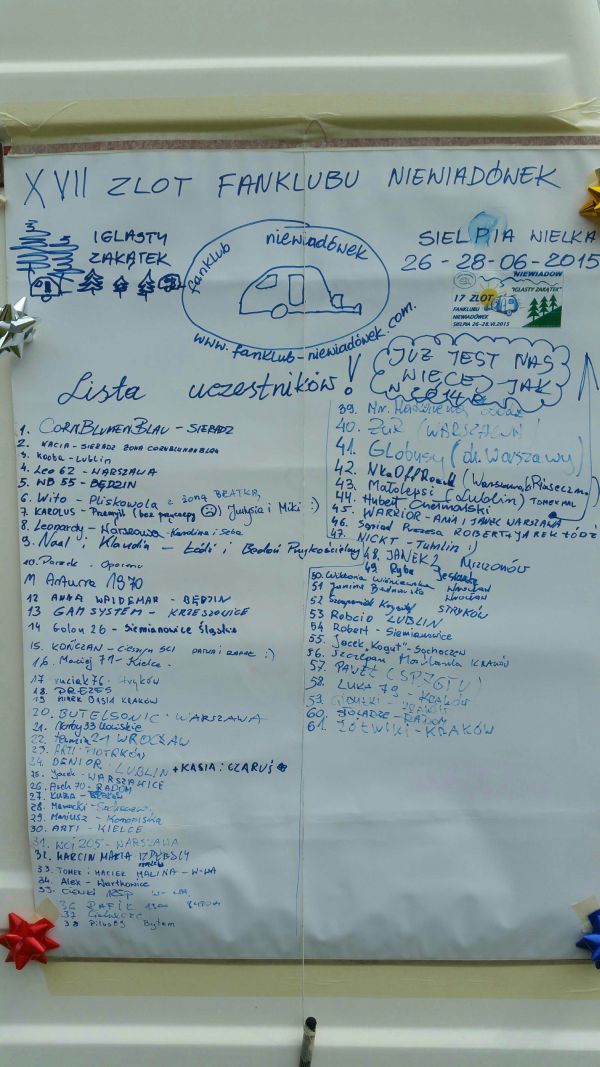 XVII ZLOT FANKLUBU NIEWIADÓWEK
IGLASTY
ZAKĄTEK
fanklub niewiadówek
www.fanklub-niewiadówek.com.
SIELPIA WIELKA
26-28-06-2015
NIEWIADÓW
"IGLASTY ZAKĄTEK"
17 ZLOT
FANKLUBU
NIEWIADÓWEK
SIELPIA 26-28.VI.2015
JUŻ JEST NAS
WIĘCEJ JAK
Lista uczestników!
1. CORNBLUMENBLAU - SIERADZ
2. KACIA - SIERADZ ŻONA CORNBLUMENBLAU
3. Kooba - Lublin
4. Leo 62 - WARSZAWA
5. WB 55 - BĘDZIN
6. Wito - Pliskowola z żoną BEATKĄ,
7. KAROLUS - Przemyśl (bez przyczepy ☹) Justysia i Miki :)
8. Leopardy - Warszawa - Karolina i Seba
9. Naal i Klaudia - Łódź i Badoń Przykościelny
10. Parzek - Opoczno
M Arturro 1970
12 ANNA WALDEMAR - BĘDZIN
13 GAM SYSTEM - KRZESZOWICE
14 Golon 26 - Siemianowice Śląskie
15. KOŃCZAN - Cieszyn
16. Maciej 71 - Kielce.
17 ruciak76 - Stryków
18. PREZES
19 MIREK BASIA KRAKÓW
20. BUTELSONIC - WARSZAWA
21.
22. 21 WROCŁAW
23. ARTI PIOTRKÓW
24. DENIOR - LUBLIN + KASIA i CZARUŚ
25. Jacek - WARSZAWICE
26. Arch 70 - RADOM
27. KUBA - KRAKÓW
28. Marecki - Sochaczew
29. Mariusz - Konopiska
30. ARTI - KIELCE
31. WOJ205 - WARSZAWA
32. MARCIN MARTA
33. TOMEK i MACIEK MALINA - W-WA
34. Alex - Wartkowice
35. CIENKI W-WA
36 RAFIK
37
38 Piłus83 Bytom
39.
40. ŻUR (WARSZAWA)
41. Globusy (dl. Warszawy)
42. NkaOffRoad (Warszawa, Piaseczno)
43. Matolepsi (Lublin)
44. Hubert TOMEKMAL
45. WARRIOR - ANIA i JACEK WARSZAWA
46. Sąsiad Prezesa ROBERT + JAREK ŁÓDŹ
47. NICKT - Tumlin :)
48. JANEK 2
49 Ryba
50. Wiktoria Wiśniewska WROCŁAW
51 Janina Bednarska WROCŁAW
52 STRYKÓW
53 Robcio LUBLIN
54 Robert - Siemianowice
55. Jacek "Kogut" - Sochaczew
56. Szczepan KRAKÓW
57. PAWEŁ (SP7GTU)
58. LUKA 79 - KRAKÓW
59.
60. RADOM
61. ŻÓŁWIKI - KRAKÓW